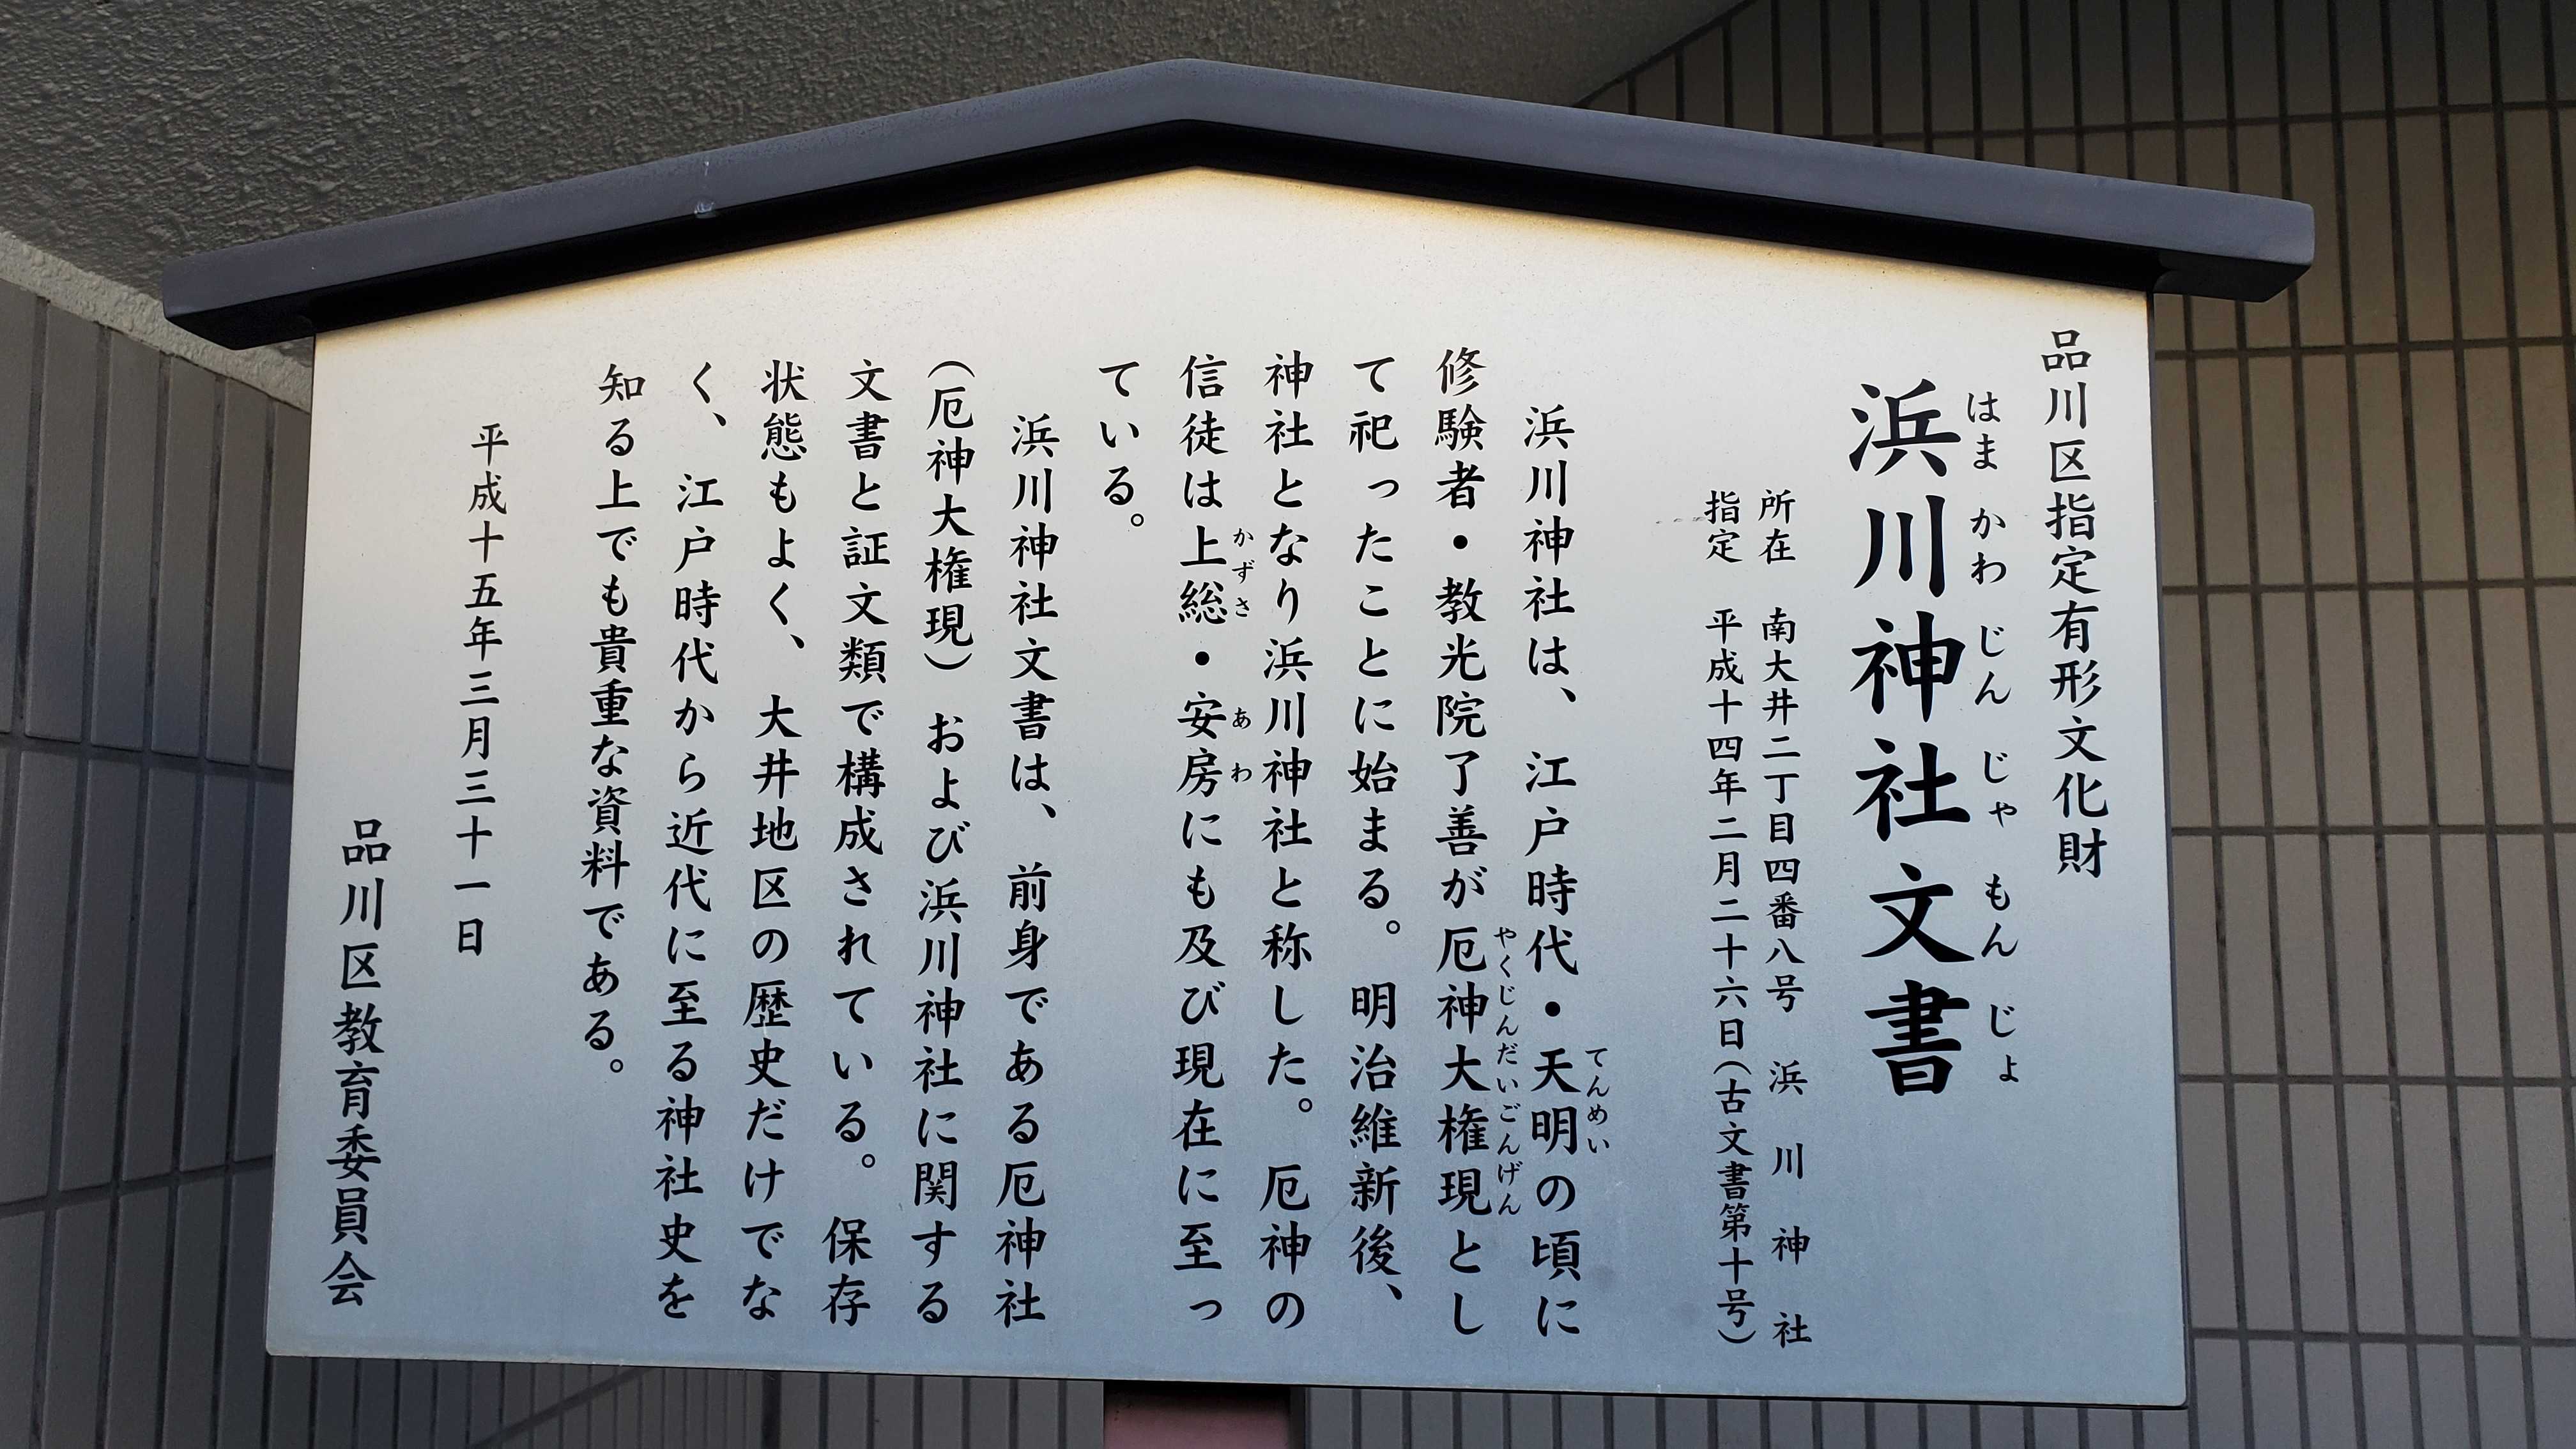 品川区指定有形文化財
はまかわじんじゃもんじょ
浜川神社文書
所在　南大井二丁目四番八号　浜川神社
指定　平成十四年二月二十六日（古文書第十号）
てんめい
浜川神社は、江戸時代・天明の頃に
やくじんだいごんげん
修験者・教光院了善が厄神大権現とし
て祀ったことに始まる。明治維新後、
神社となり浜川神社と称した。厄神の
かずさ　あわ
信徒は上総・安房にも及び現在に至っ
ている。
浜川神社文書は、前身である厄神社
（厄神大権現）および浜川神社に関する
文書と証文類で構成されている。保存
状態もよく、大井地区の歴史だけでな
く、江戸時代から近代に至る神社史を
知る上でも貴重な資料である。
平成十五年三月三十一日
品川区教育委員会